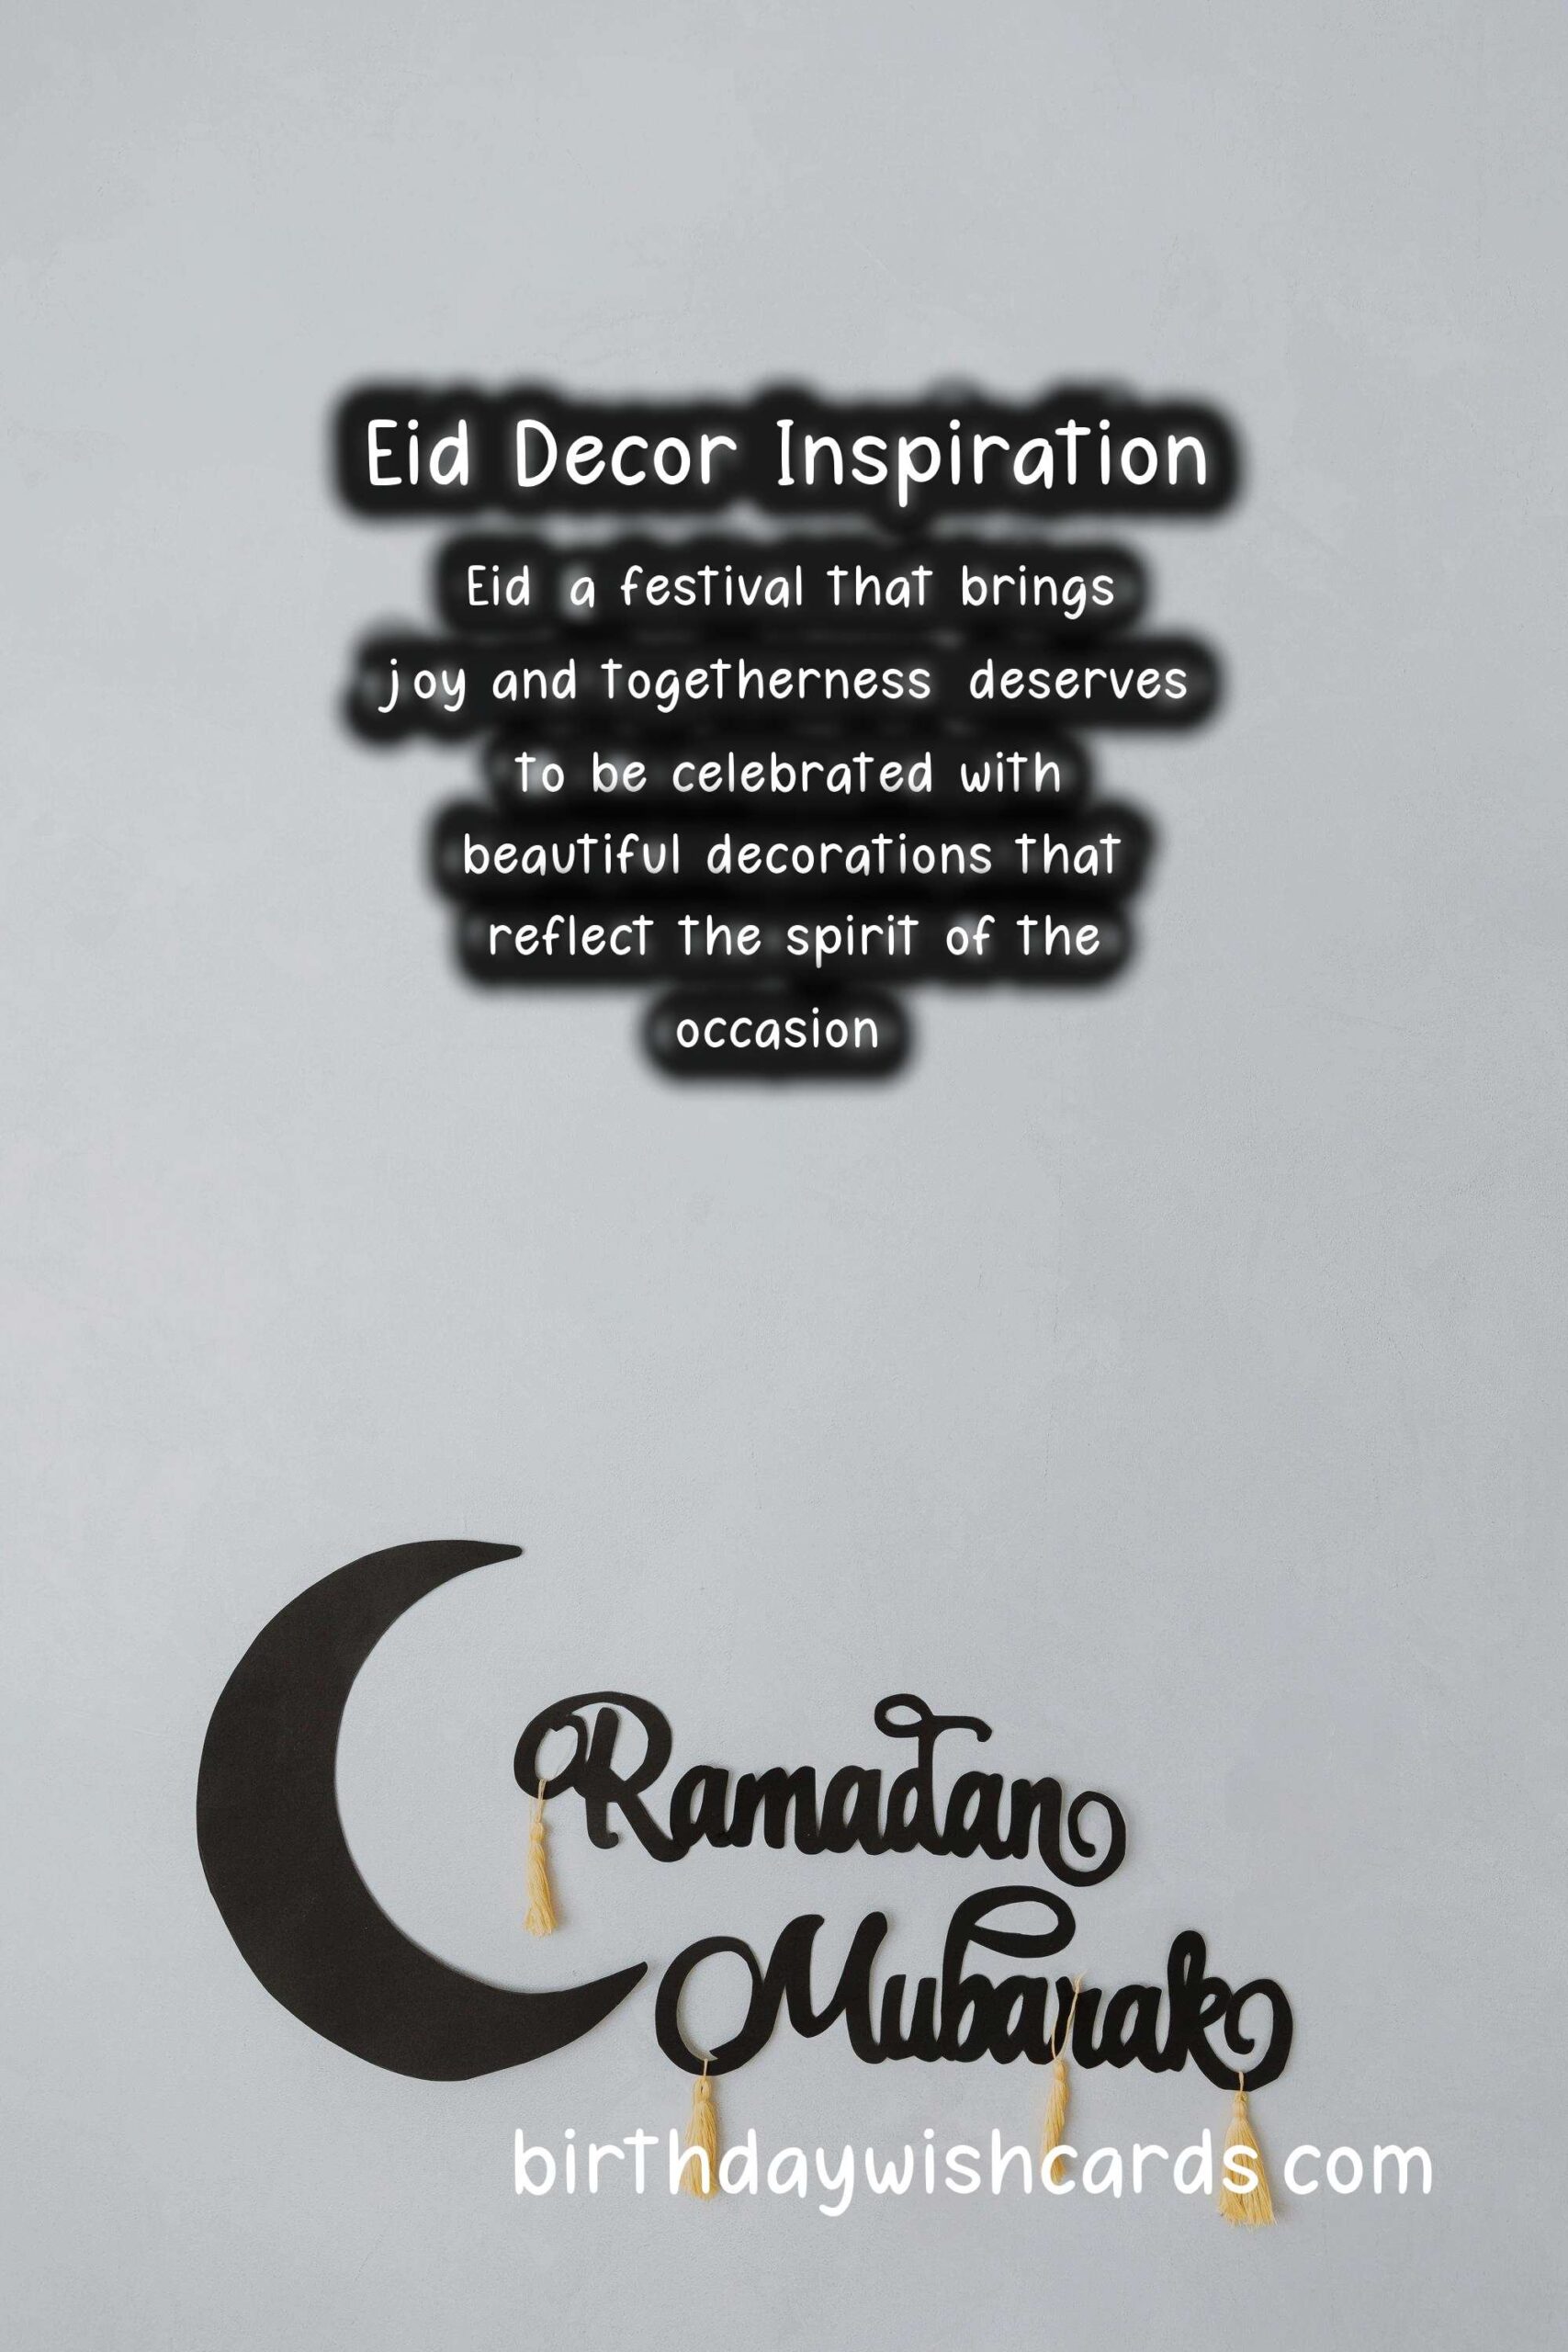 Eid Decor Inspiration
Eid a festival that brings
joy and togetherness deserves
to be celebrated with
beautiful decorations that
reflect the spirit of the
occasion
Ramadan
Mubarak
birthdaywishcards.com